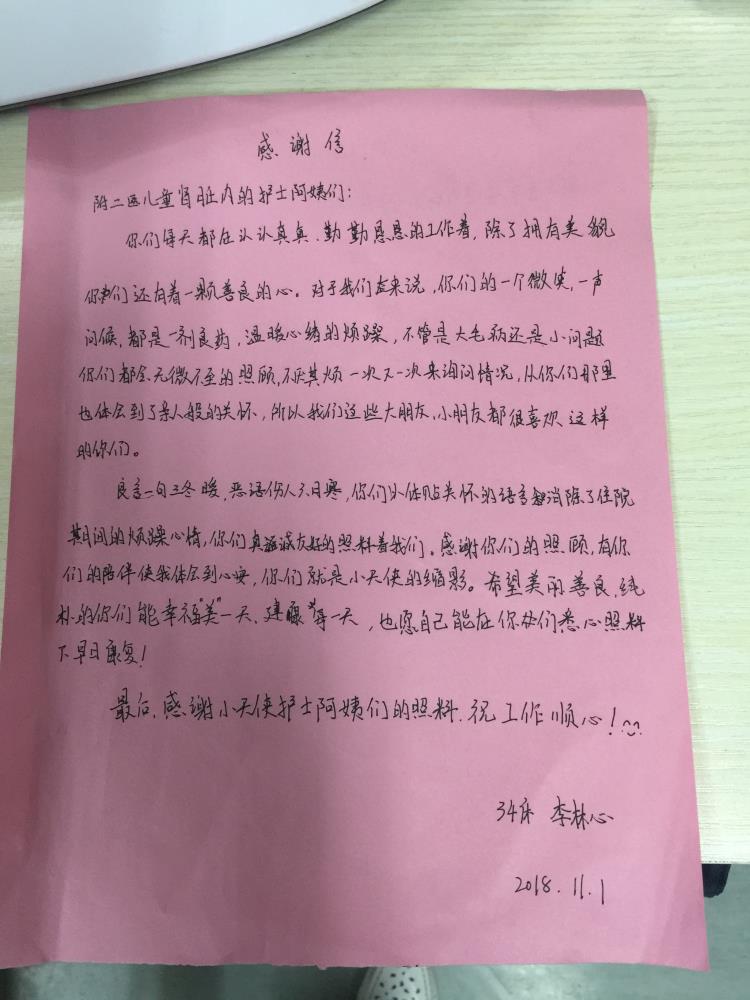 感谢信
附二医儿童肾脏内的护士阿姨们:
你们每天都在认认真真、勤勤恳恳的工作着,除了拥有美貌
你们还有着一颗善良的心。对于我们来说,你们的一个微笑,一声
问候,都是一剂良药,温暖心绪的烦躁,不管是大毛病还是小问题
你们都会无微不至的照顾,不厌其烦一次又一次来询问情况,从你们那里
也体会到了亲人般的关怀,所以我们这些大朋友,小朋友都很喜欢这样
的你们。
良言一句三冬暖,恶语伤人六月寒,你们以体贴关怀的语言消除了住院
期间的烦躁心情,你们真诚友好的照料着我们。感谢你们的照顾,有你
们的陪伴使我体会到心安,你们就是小天使的缩影。希望美丽善良,纯
朴的你们能幸福"美"一天、健康"每一天,也愿自己能在你们悉心照料
下早日康复!
最后,感谢小天使护士阿姨们的照料.祝工作顺心!
34床 李林心
2018.11.1